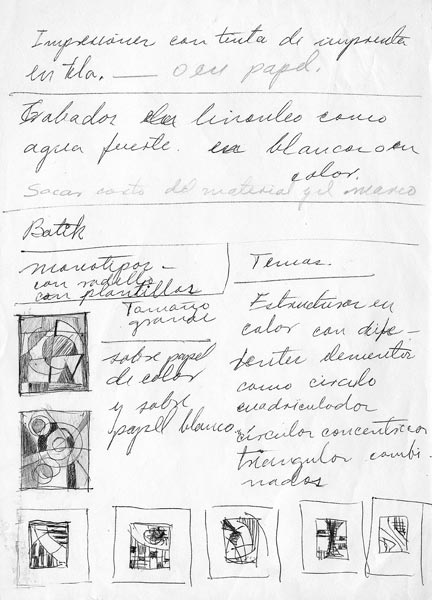 Impresiones con tinta de imprenta
en tela. — o en papel.
Grabados en linoleo como
agua fuerte. en blanco o en
color.
Sacar costo del material y el marco
Batik
monotipos -
con rodillo
con plantillas
Tamaño
grande
sobre papel
de color
y sobre
papel blanco.
Temas.
Estructuras en
color con dife-
rentes elementos
como circulo
cuadriculados
circulos concentricos
triangulos combi-
nados